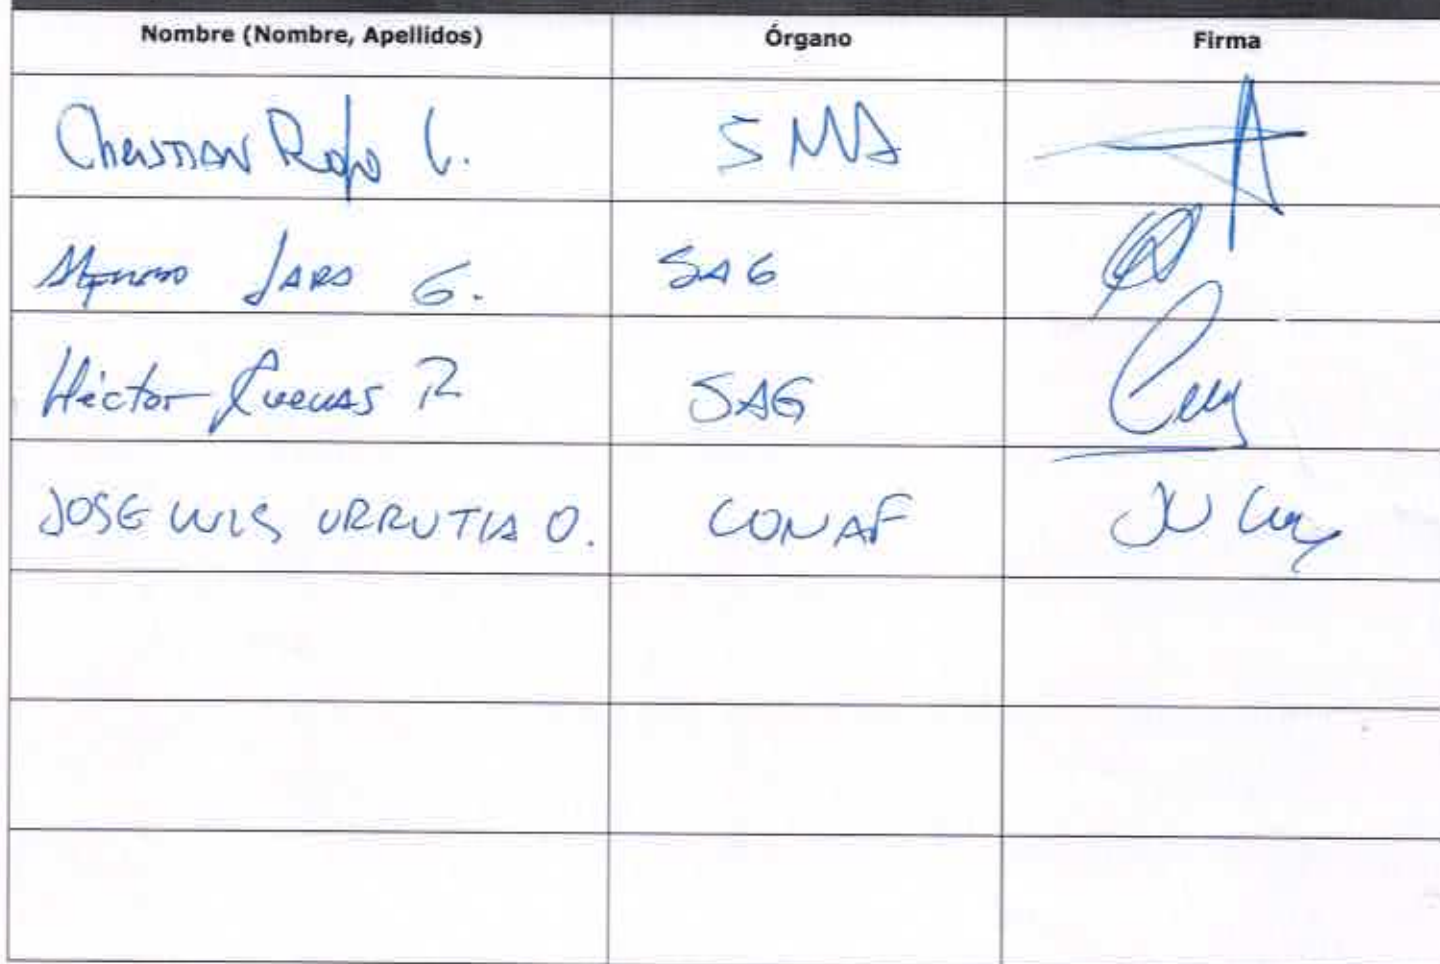 Nombre (Nombre, Apellidos) Órgano Firma
Christian Rojo L. SMA
JARA G. SAG
Héctor Cuevas R SAG
JOSE LUIS URRUTIA O. CONAF